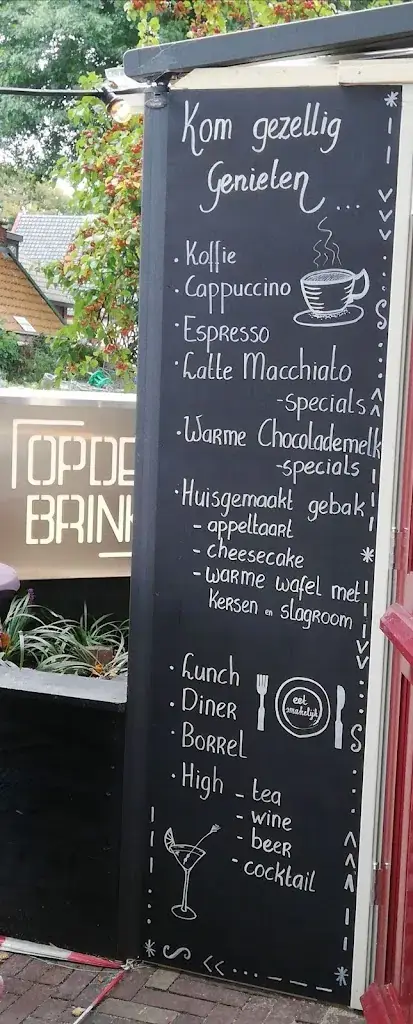 Kom gezellig
Genieten...
· Koffie
· Cappuccino
· Espresso
· Latte Macchiato
-specials
· Warme Chocolademelk
-specials
· Huisgemaakt gebak
- appeltaart
- cheesecake
- warme wafel met
Kersen en slagroom
· Lunch
· Diner
· Borrel
eet
smakelijk
· High - tea
- wine
- beer
- cocktail
OPDE
BRINK